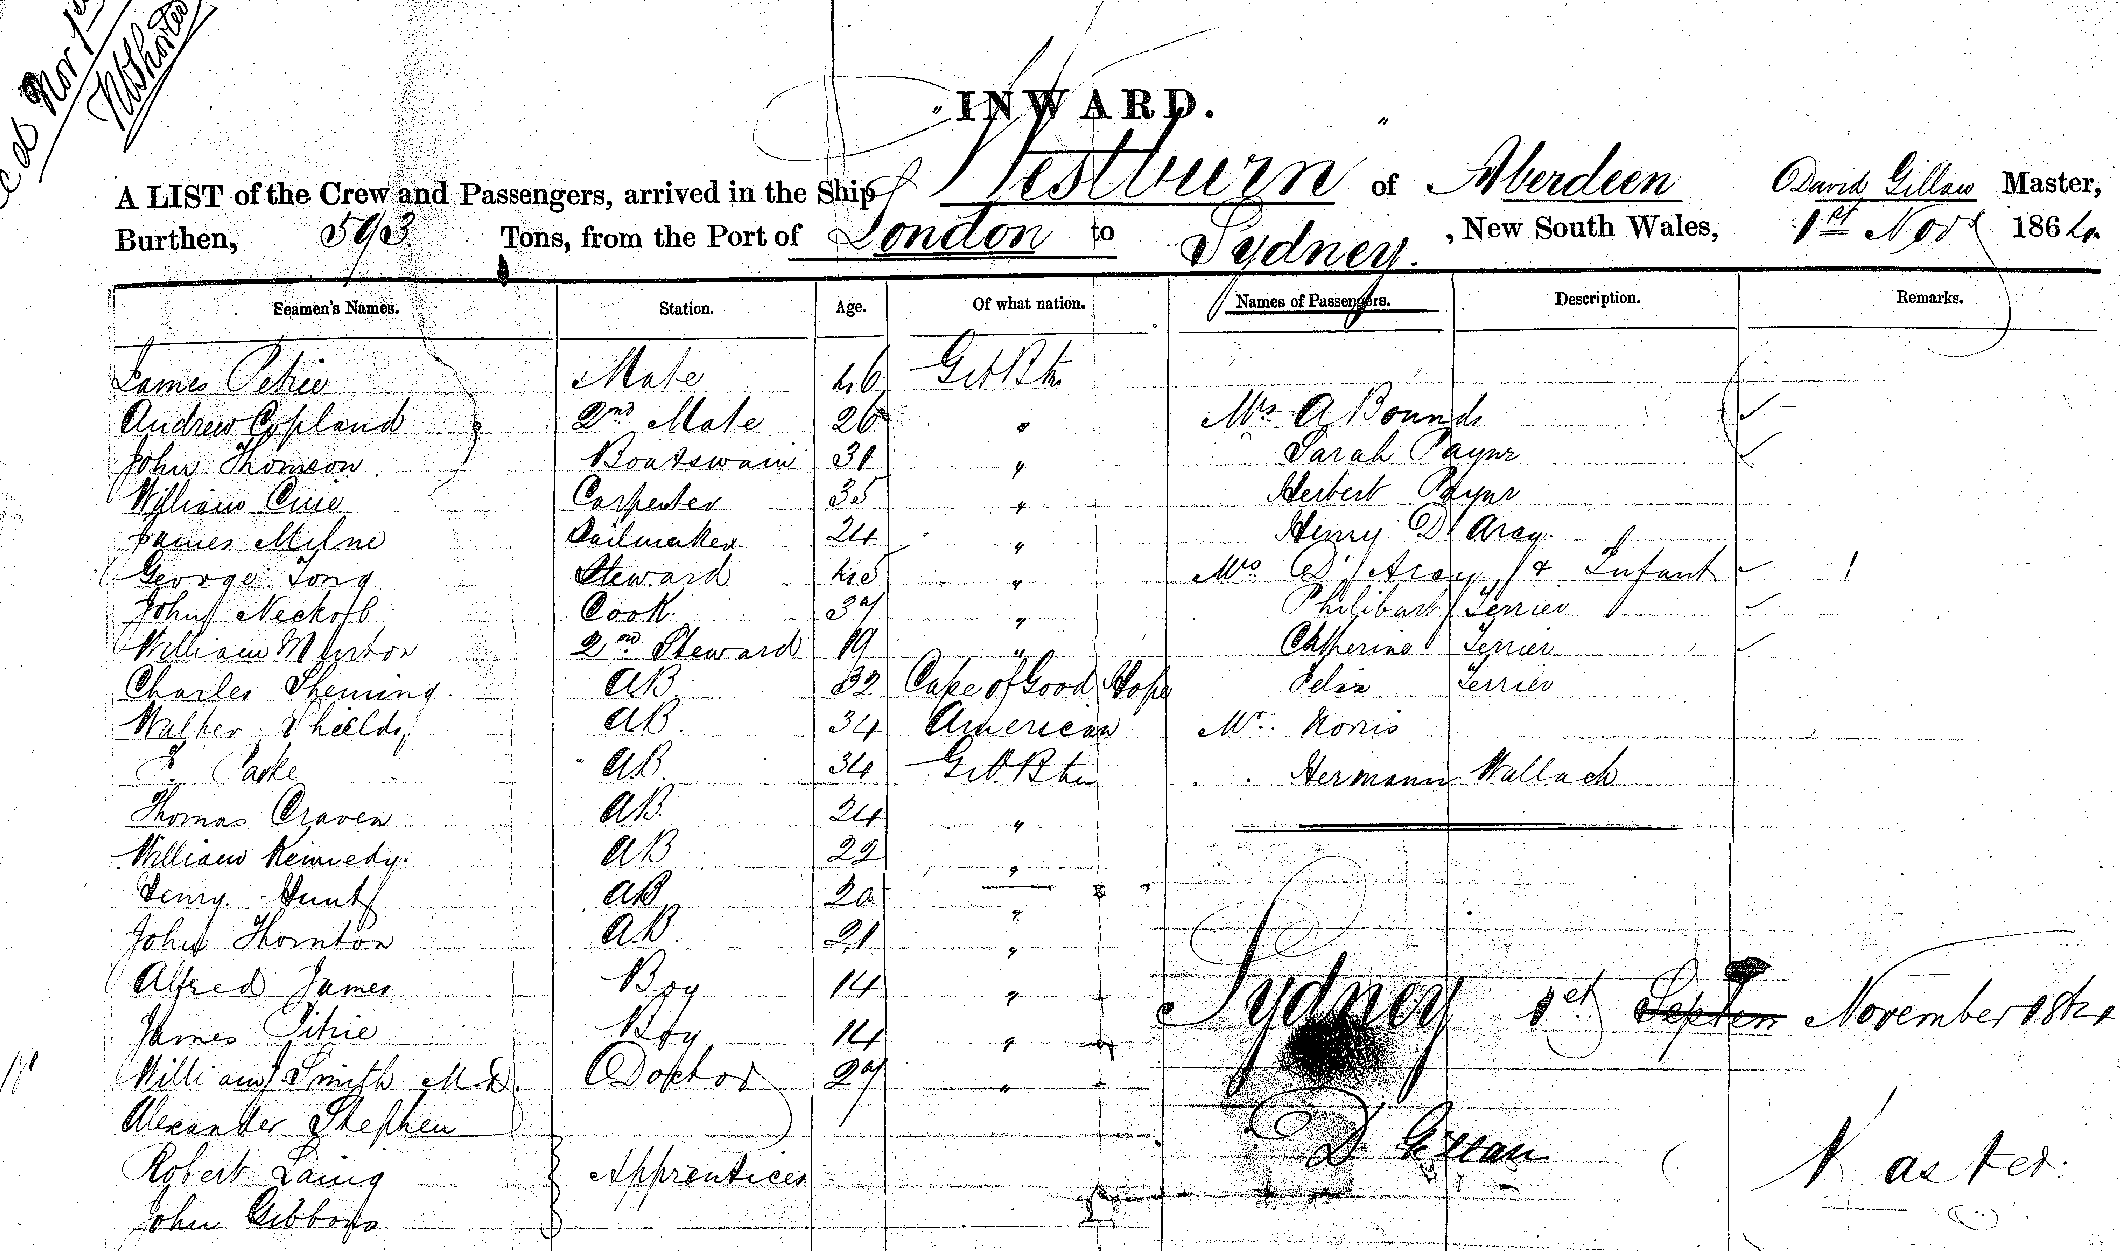 Nov 1st
INWARD.
A LIST of the Crew and Passengers, arrived in the Ship Westburn of Aberdeen David Gillan Master,
Burthen, 593 Tons, from the Port of London to Sydney. , New South Wales, 1st Novr 1864
Seamen's Names. Station. Age. Of what nation. Names of Passengers. Description. Remarks.
James Petrie Mate 46 Gt Btn
Andrew Copland 2nd Mate 26 " Mrs A Bounds
John Thomson Boatswain 31 " Sarah Payne
William Carpenter 35 " Herbert Payne
James Milne Sailmaker 24 " Henry D'Arcy
George Tong Steward 45 " Mrs D'Arcy & Infant
John Cook 37 " Philibert Terrier
William 2nd Steward 19 " Catherine Terrier
Charles Sheming AB 32 Cape of Good Hope Felix Terrier
Walter Shields AB 34 American Mr Norris
AB 34 Gt Btn Hermann Wallach
Thomas Craven AB 24 "
William Kennedy AB 22 "
Henry Hunt AB 20 "
John Thornton AB 21 "
Alfred James Boy 14 "
James Petrie Boy 14 " Sydney 1st Septem November 1864
William Smith M.D. Doctor 27 "
Alexander Stephen
Robert Laing Apprentices D Gillan Master
John Gibbons